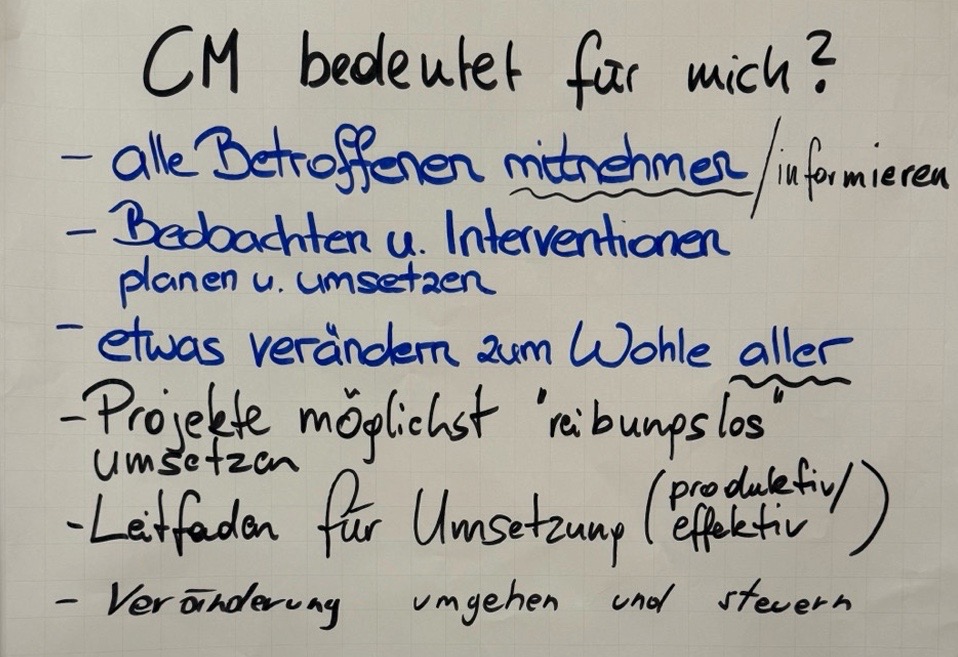 CM bedeutet für mich?
- alle Betroffenen mitnehmen / informieren
- Beobachten u. Interventionen
planen u. umsetzen
- etwas verändern zum Wohle aller
- Projekte möglichst "reibungslos"
umsetzen
- Leitfaden für Umsetzung (produktiv/
effektiv)
- Veränderung umgehen und steuern